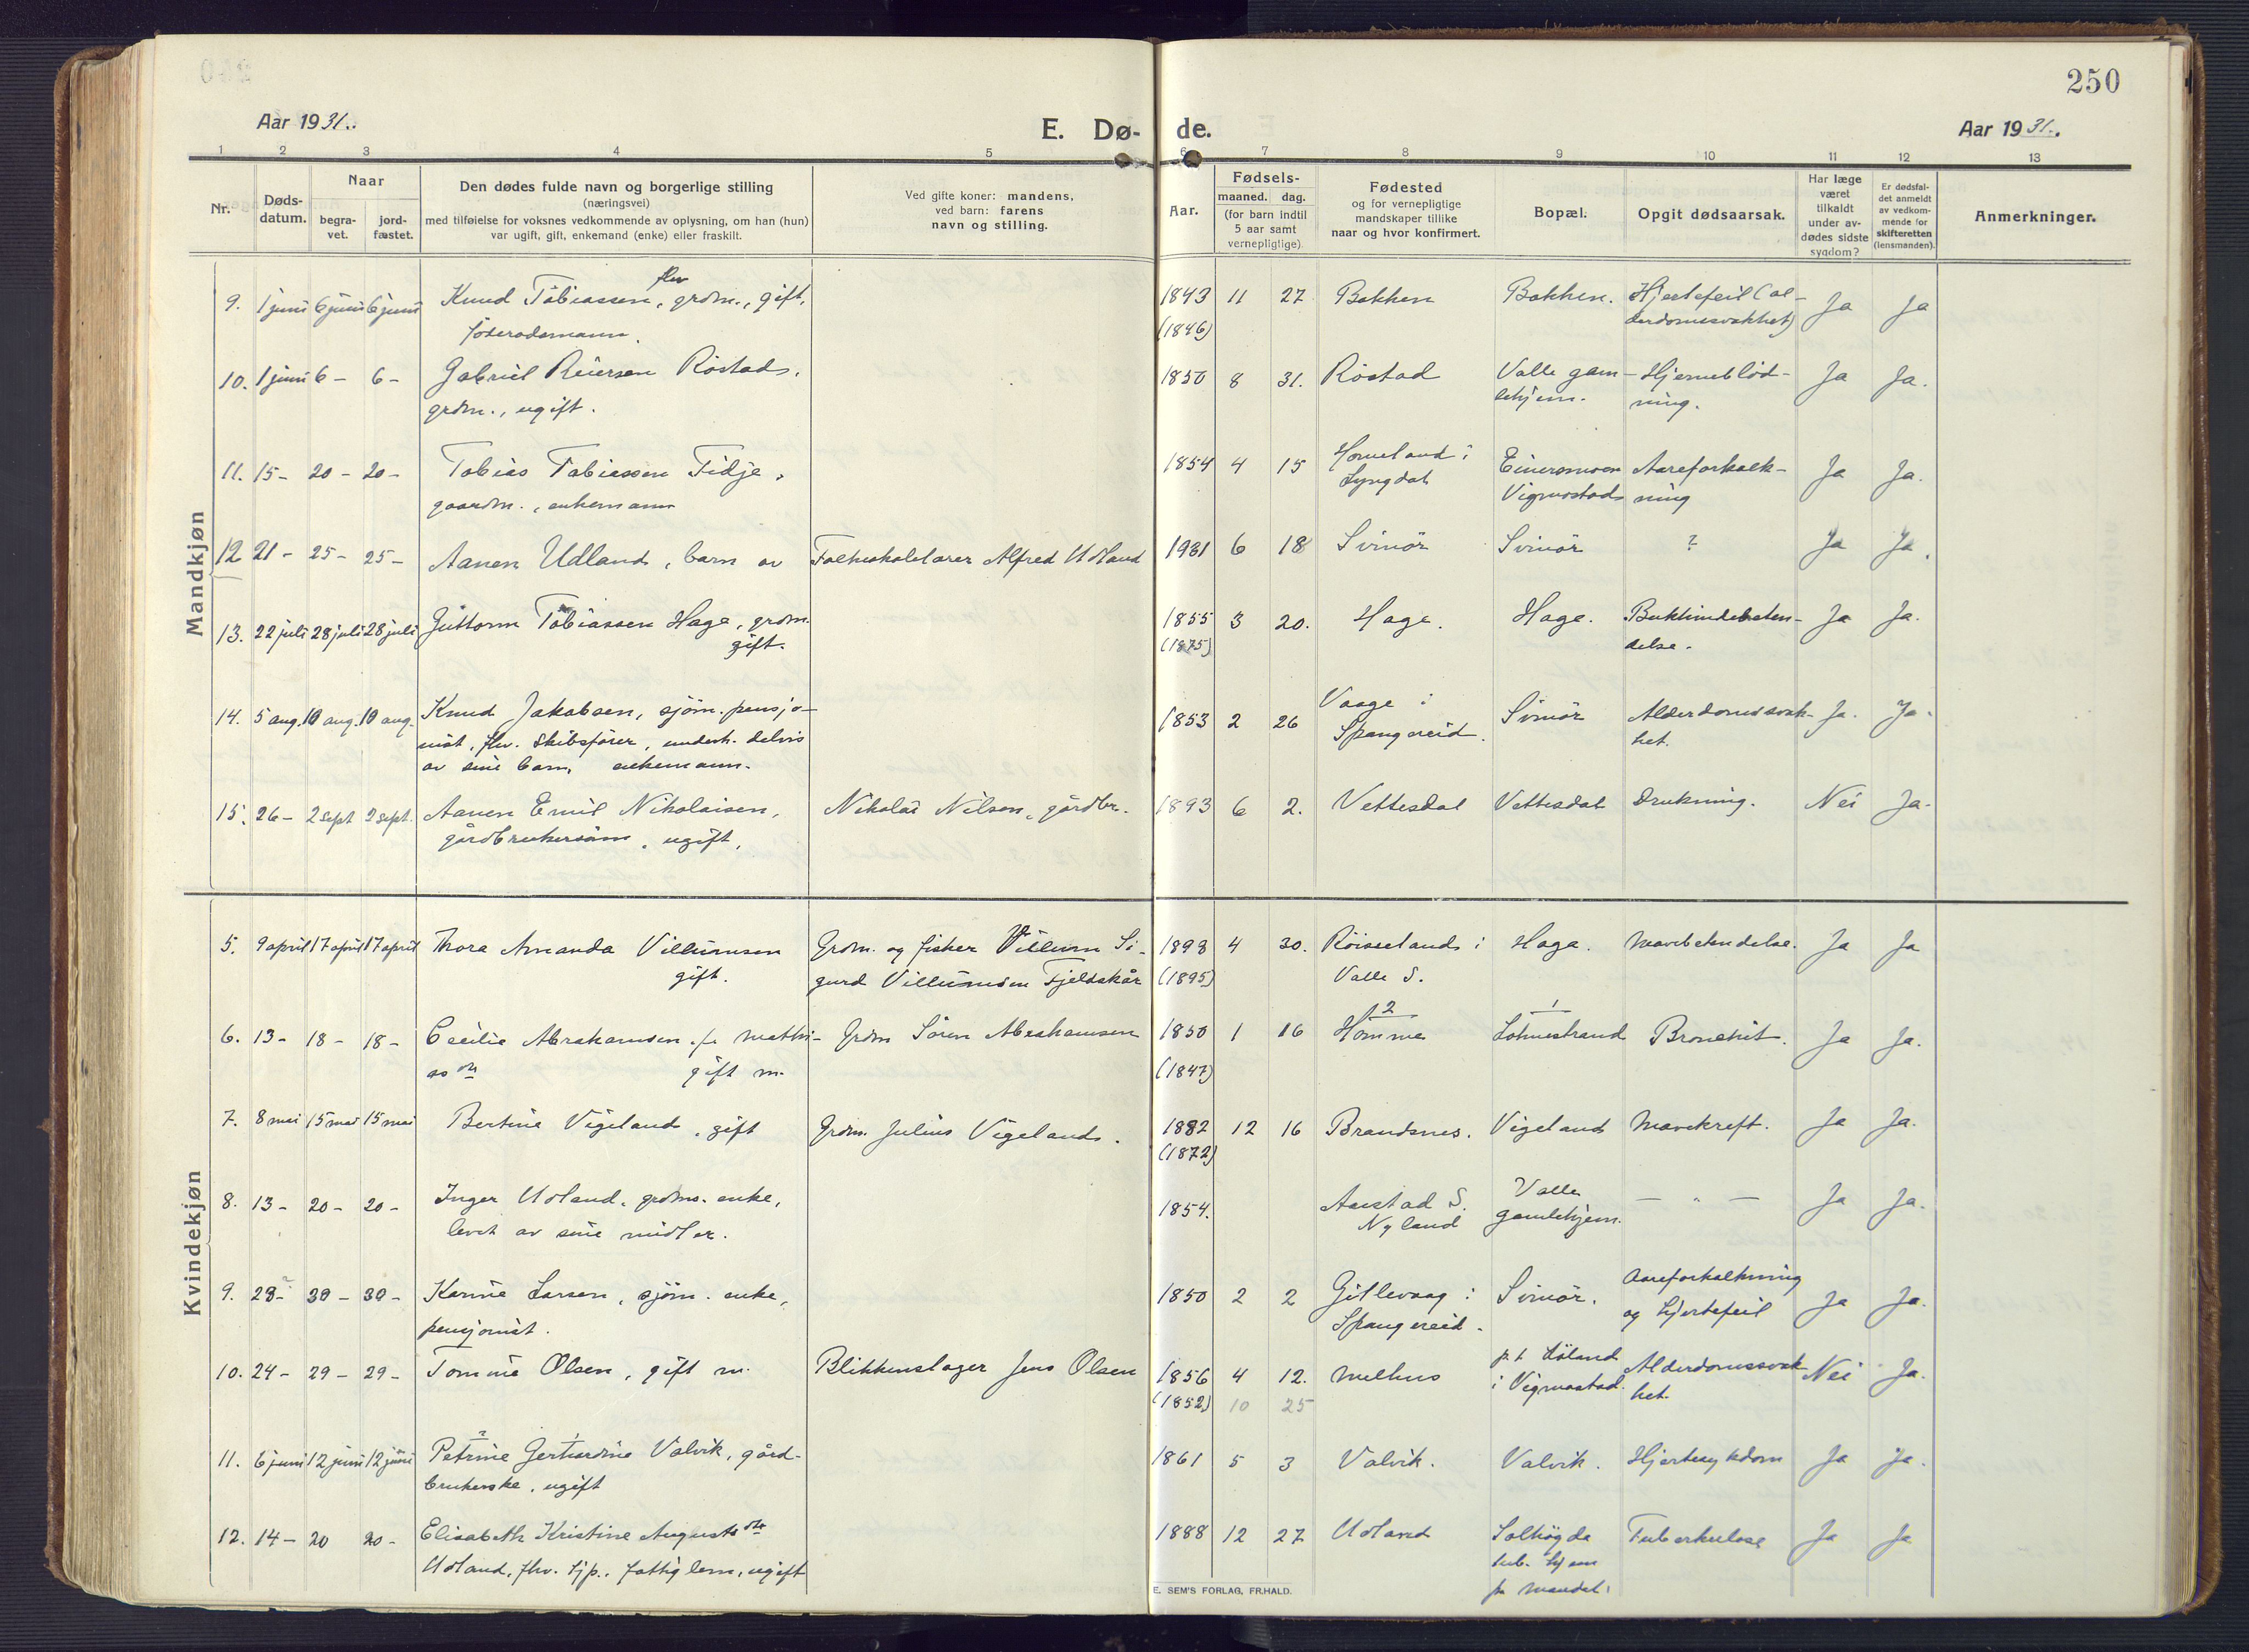 250
Aar 1931.
E. Dø- de.
Aar 1931.
1 2 3 4 5 6 7 8 9 10 11 12 13
Nr.
Døds-
datum.
Naar
begra-
vet.
jord-
fæstet.
Den dødes fulde navn og borgerlige stilling
(næringsvei)
med tilføielse for voksnes vedkommende av oplysning, om han (hun)
var ugift, gift, enkemand (enke) eller fraskilt.
Ved gifte koner: mandens,
ved barn: farens
navn og stilling.
Aar.
Fødsels-
maaned. dag.
(for barn indtil
5 aar samt
vernepligtige)
Fødested
og for vernepligtige
mandskaper tillike
naar og hvor konfirmert.
Bopæl.
Opgit dødsaarsak.
Har læge
været
tilkaldt
under av-
dødes sidste
sygdom?
Er dødsfal-
det anmeldt
av vedkom-
mende for
skifteretten
(lensmanden).
Anmerkninger.
Mandkjøn
flv
9. 1 juni 6 juni 6 juni Knud Tobiassen, grdm., gift, 1843 11 27 Bakken Bakken. Hjertefeil (al- Ja Ja
föderådsmann. (1846) derdomssvakhet)
10. 1 juni 6 - 6 - Gabriel Reiersen Röstad, 1850 8 31. Röstad Valle gam- Hjerneblöd- Ja Ja.
grdm., ugift. lehjem. ning.
11. 15 - 20 - 20 - Tobias Tobiassen Fidje, 1854 4 15 Homeland i Einersmoen Aareforkalk- Ja Ja.
gaardm., enkemann Lyngdal Vigmostad ning
12 21 - 25 - 25 - Aanen Udland, barn av Folkeskolelærer Alfred Udland 1931 6 18 Svinör Svinör ? Ja Ja.
13. 22 juli 28 juli 28 juli Guttorm Tobiassen Hage, grdm. 1855 3 20. Hage. Hage. Bukhindebeten- Ja Ja.
gift. (1875) delse.
14. 5 aug. 10 aug. 10 aug. Knud Jakobsen, sjöm. pensjo- 1853 2 26 Vaage i Svinör Alderdomssvak- Ja. Ja.
nist, flv. skibsförer, underh. delvis Spangereid. het.
av sine barn, enkemann.
15. 26 - 2 sept 2 sept. Aanen Emil Nikolaisen, Nikolai Nilsen, gårdbr. 1893 6 2. Vettesdal Vettesdal Drukning. Nei Ja.
gårdbrukersönn, ugift.
Kvindekjøn
5. 9 april 17 april 17 april Thora Amanda Villumsen Grdm. og fisker Villum Si- 1893 4 30. Röisseland i Hage. Mavebetendelse. Ja Ja
gift. gurd Villumsen Fjeldskår (1895) Valle S.
2 1
6. 13 - 18 - 18 - Cecilie Abrahamsen f. Mathi- Grdm Sören Abrahamsen 1850 1 16 Homme Lohnestrand Bronchit. Ja Ja.
asdtr gift m. (1847)
7. 8 mai 15 mai 15 mai Bertine Vigeland, gift Grdm. Julius Vigeland. 1882 12 16 Brandsnes. Vigeland Mavekreft. Ja Ja.
(1872)
8. 13 - 20 - 20 - Inger Udland, grdms. enke, 1854. Aavstad S. Valle — " — Ja Ja.
levet av sine midler. Nyland gamlehjem.
9. 23 - 30 - 30 - Karine Larsen, sjöm. enke, 1850 2 2 Gitlevaag i Svinör. Aareforkalkning Ja Ja.
pensjonist. Spangereid. og hjertefeil
10. 24 - 29 - 29 - Tomine Olsen, gift m. Blikkenslager Jens Olsen 1856 4 12. Melhus p.t. Löland Alderdomssvak Nei Ja.
(1852) 10 25 i Vigmostad. het.
2 1
11. 6 juni 12 juni 12 juni Petrine Gerhardine Valvik, gård- 1861 5 3 Valvik. Valvik. Hjertesykdom Ja Ja.
brukerske, ugift
12. 14 - 20 20 - Elisabeth Kristine Augustsdtr 1888 12 27 Udland Solhögda Tuberkulose Ja Ja
Udland, flv. tjp., fattiglem, ugift tub. hjem
pr Mandal.
E. SEM'S FORLAG, FR.HALD.